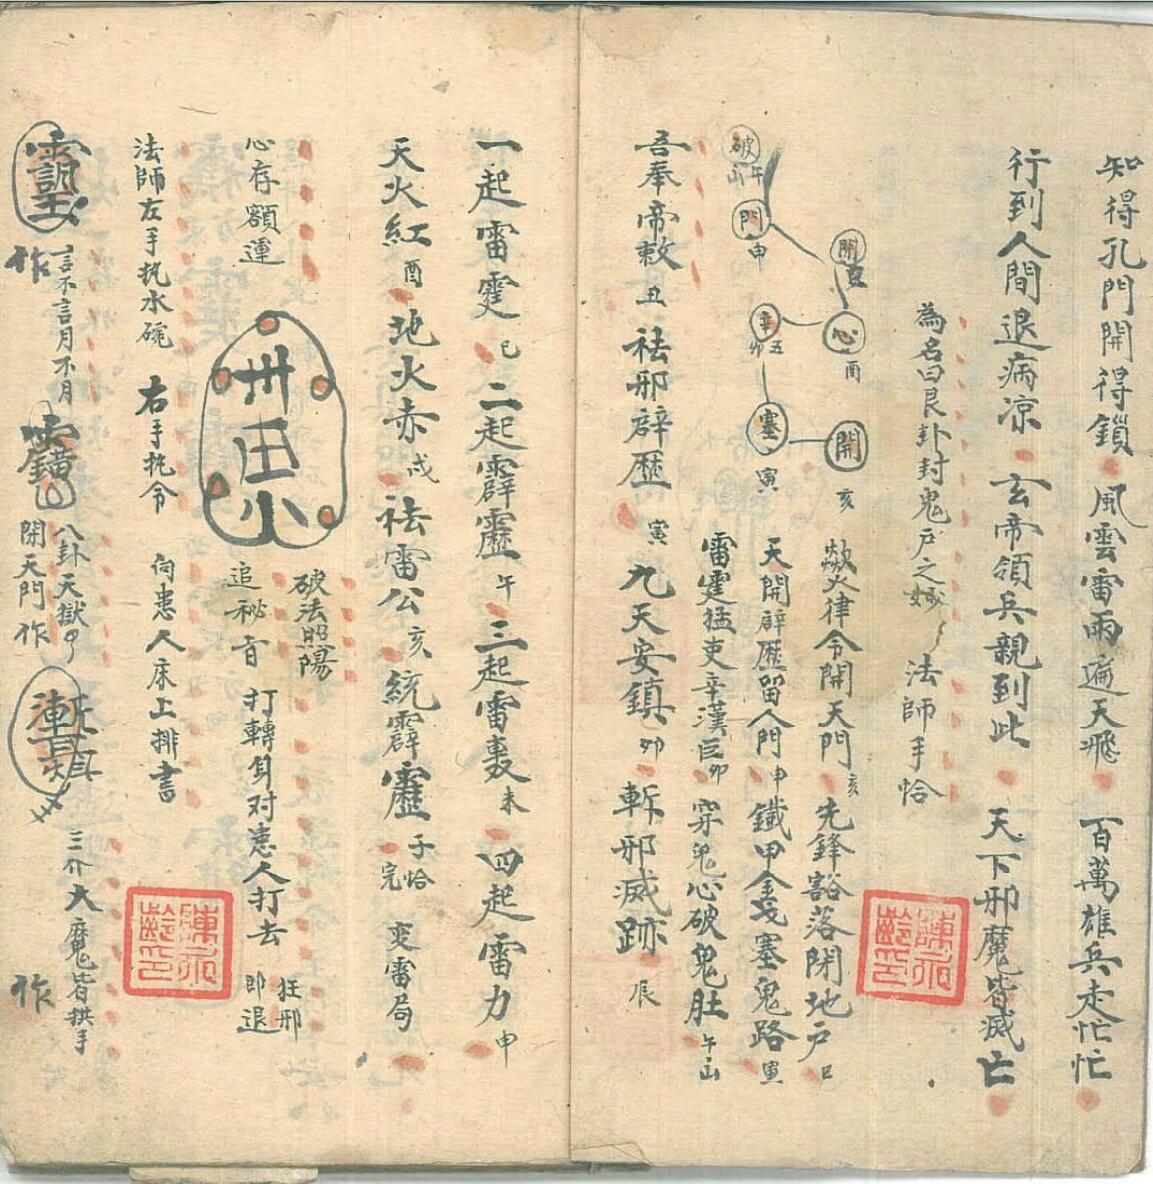 知得孔門開得鎖風雲雷雨遍天飛百萬雄兵走忙忙
行到人間退病涼玄帝領兵親到此天下邪魔皆滅亡
為名曰艮卦封鬼戶之妙法師手恰
開 心酉 開亥
焱火律令開天門亥先鋒豁落閉地戶巳
破午山 門申 辛丑卯 塞寅
天開辟歷留人門申鐵甲金戈塞鬼路寅
雷霆猛吏辛漢臣卯穿鬼心破鬼肚午山
吾奉帝敕丑祛邪辟歷寅九天安鎮卯斬邪滅跡辰
一起雷霆巳二起霹靂午三起雷轰未四起雷力申
天火紅酉地火赤戌祛雷公亥統霹靂子恰完变雷局
心存額運
破法照陽
追秘旨打轉身对患人打去狂邪即退
法師左手执水碗右手执令向患人床上排書
作言不言月不月
八卦天獄
閉天門作
三介大魔皆拱手作